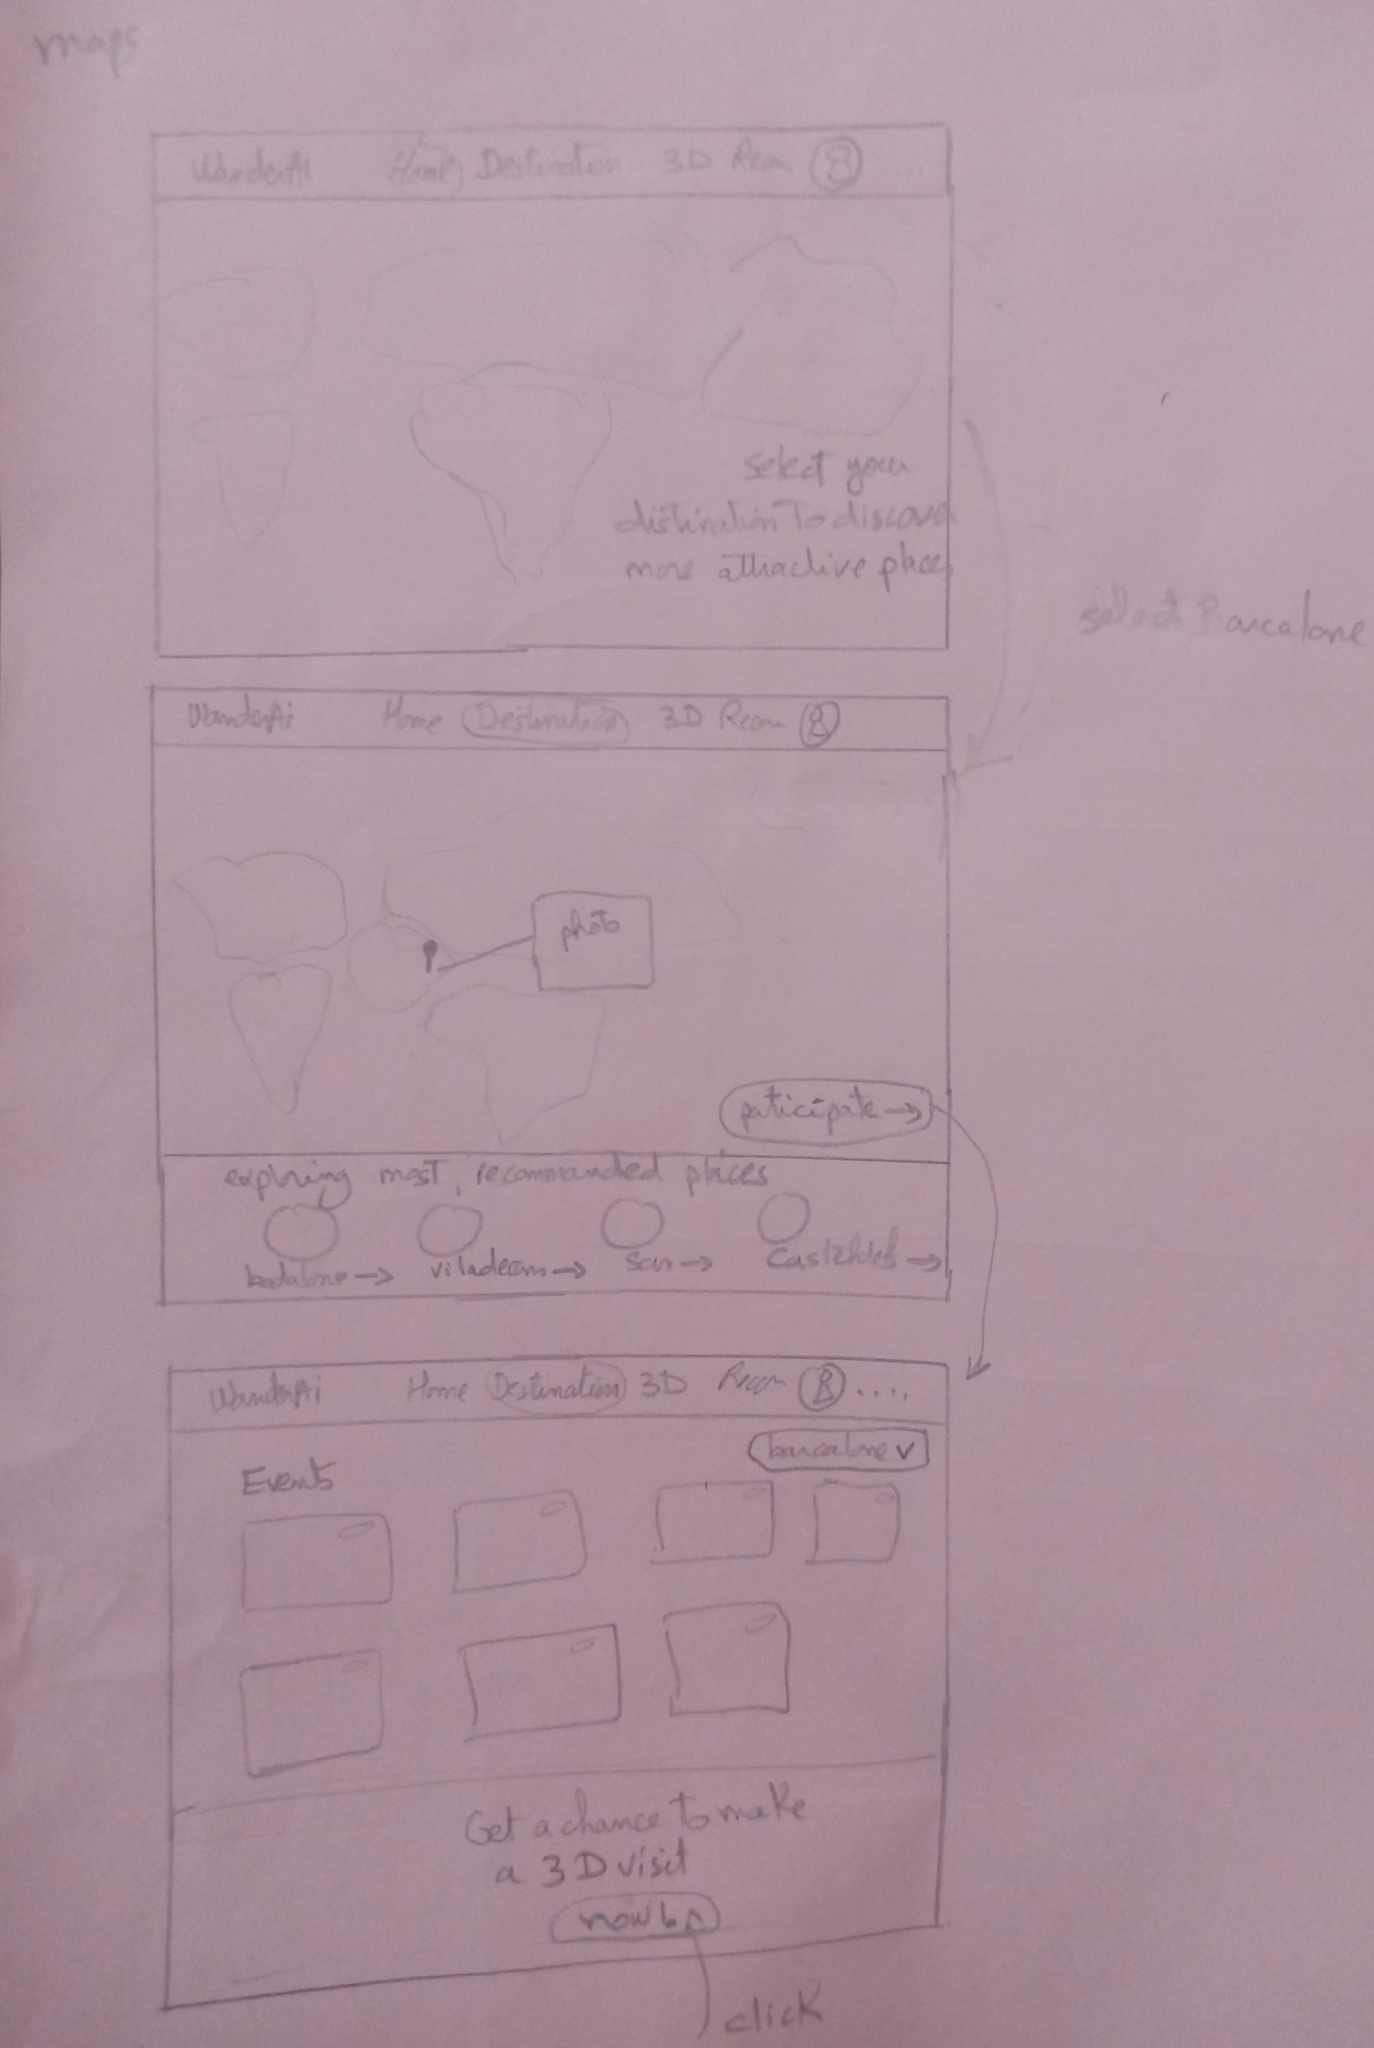 maps
WanderAI Home Destination 3D Recom
select your
distination To discover
more attractive place
select Barcalone
WanderAi Home Destination 3D Recom
photo
participate →
exploring most, recommanded places
badalone → viladecans → San →
WanderAi Home Destination 3D Recom ....
barcalone v
Events
Get a chance to make
a 3D visit
now
click